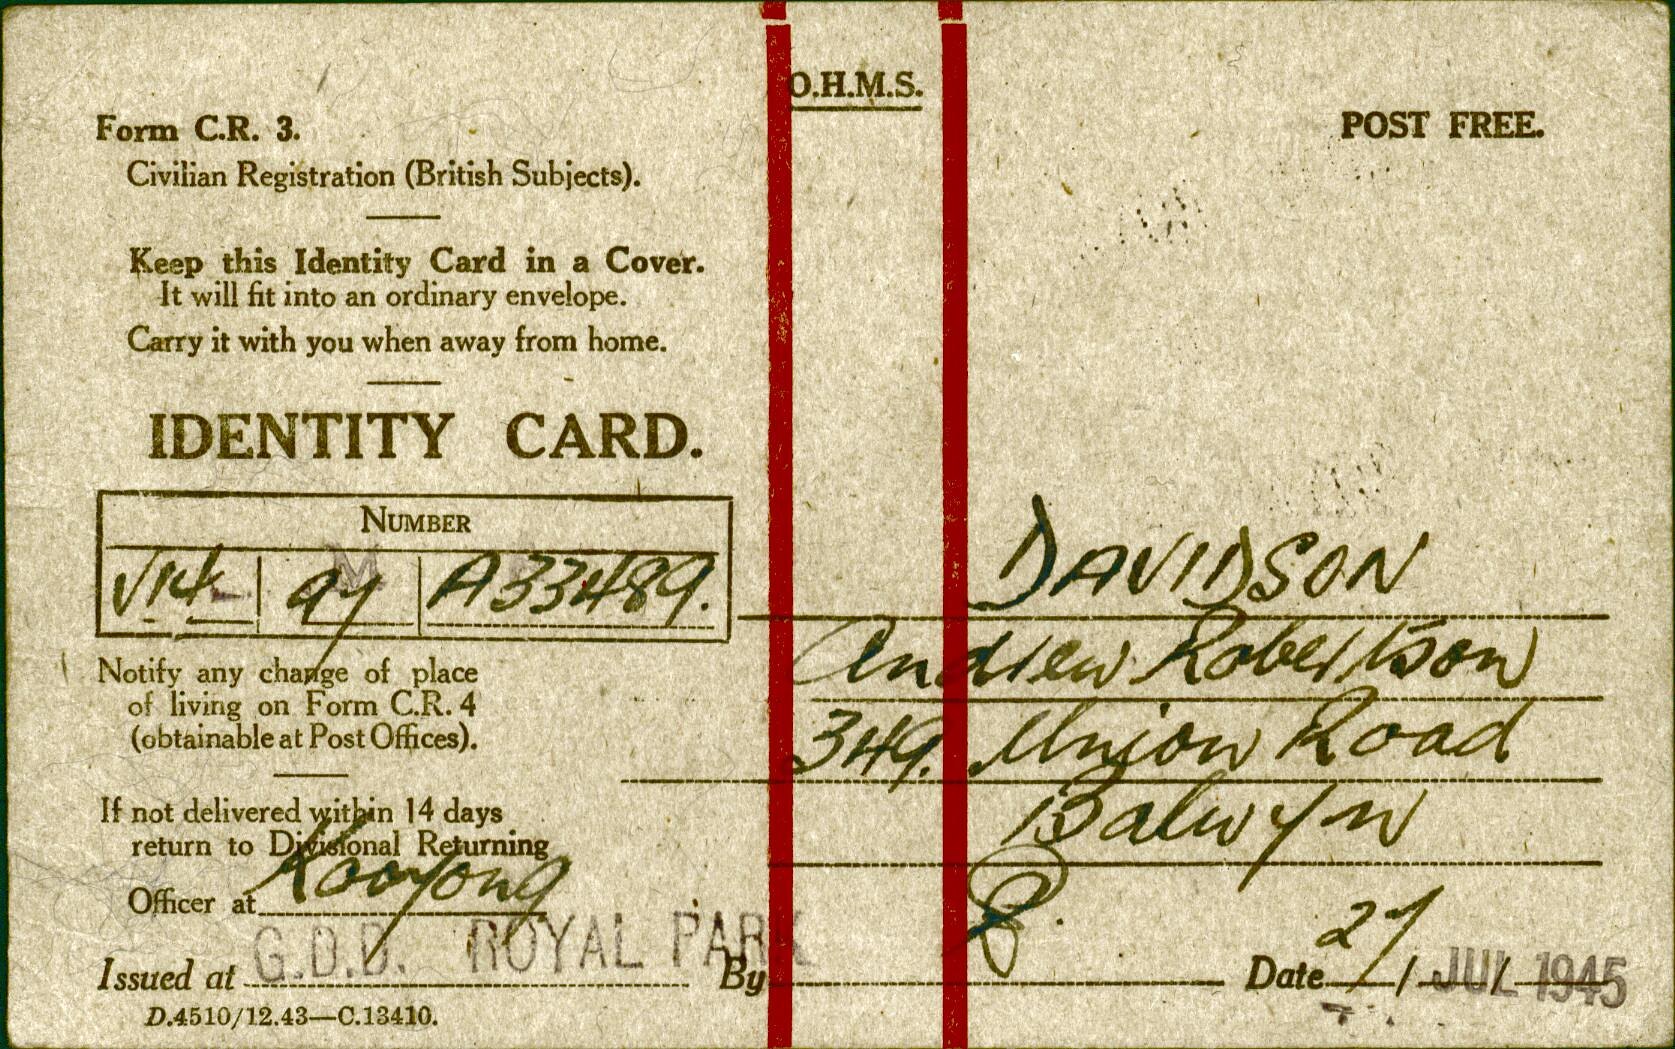 O.H.M.S.
POST FREE.
Form C.R. 3.
Civilian Registration (British Subjects).
Keep this Identity Card in a Cover.
It will fit into an ordinary envelope.
Carry it with you when away from home.
IDENTITY CARD.
NUMBER
A33489.
Notify any change of place
of living on Form C.R. 4
(obtainable at Post Offices).
If not delivered within 14 days
return to Divisional Returning
Officer at Kooyong
Issued at G.D.D. ROYAL PARK By
D.4510/12.43—C.13410.
DAVIDSON
Andrew Robertson
349. Union Road
Balwyn
Date 27 / JUL 1945